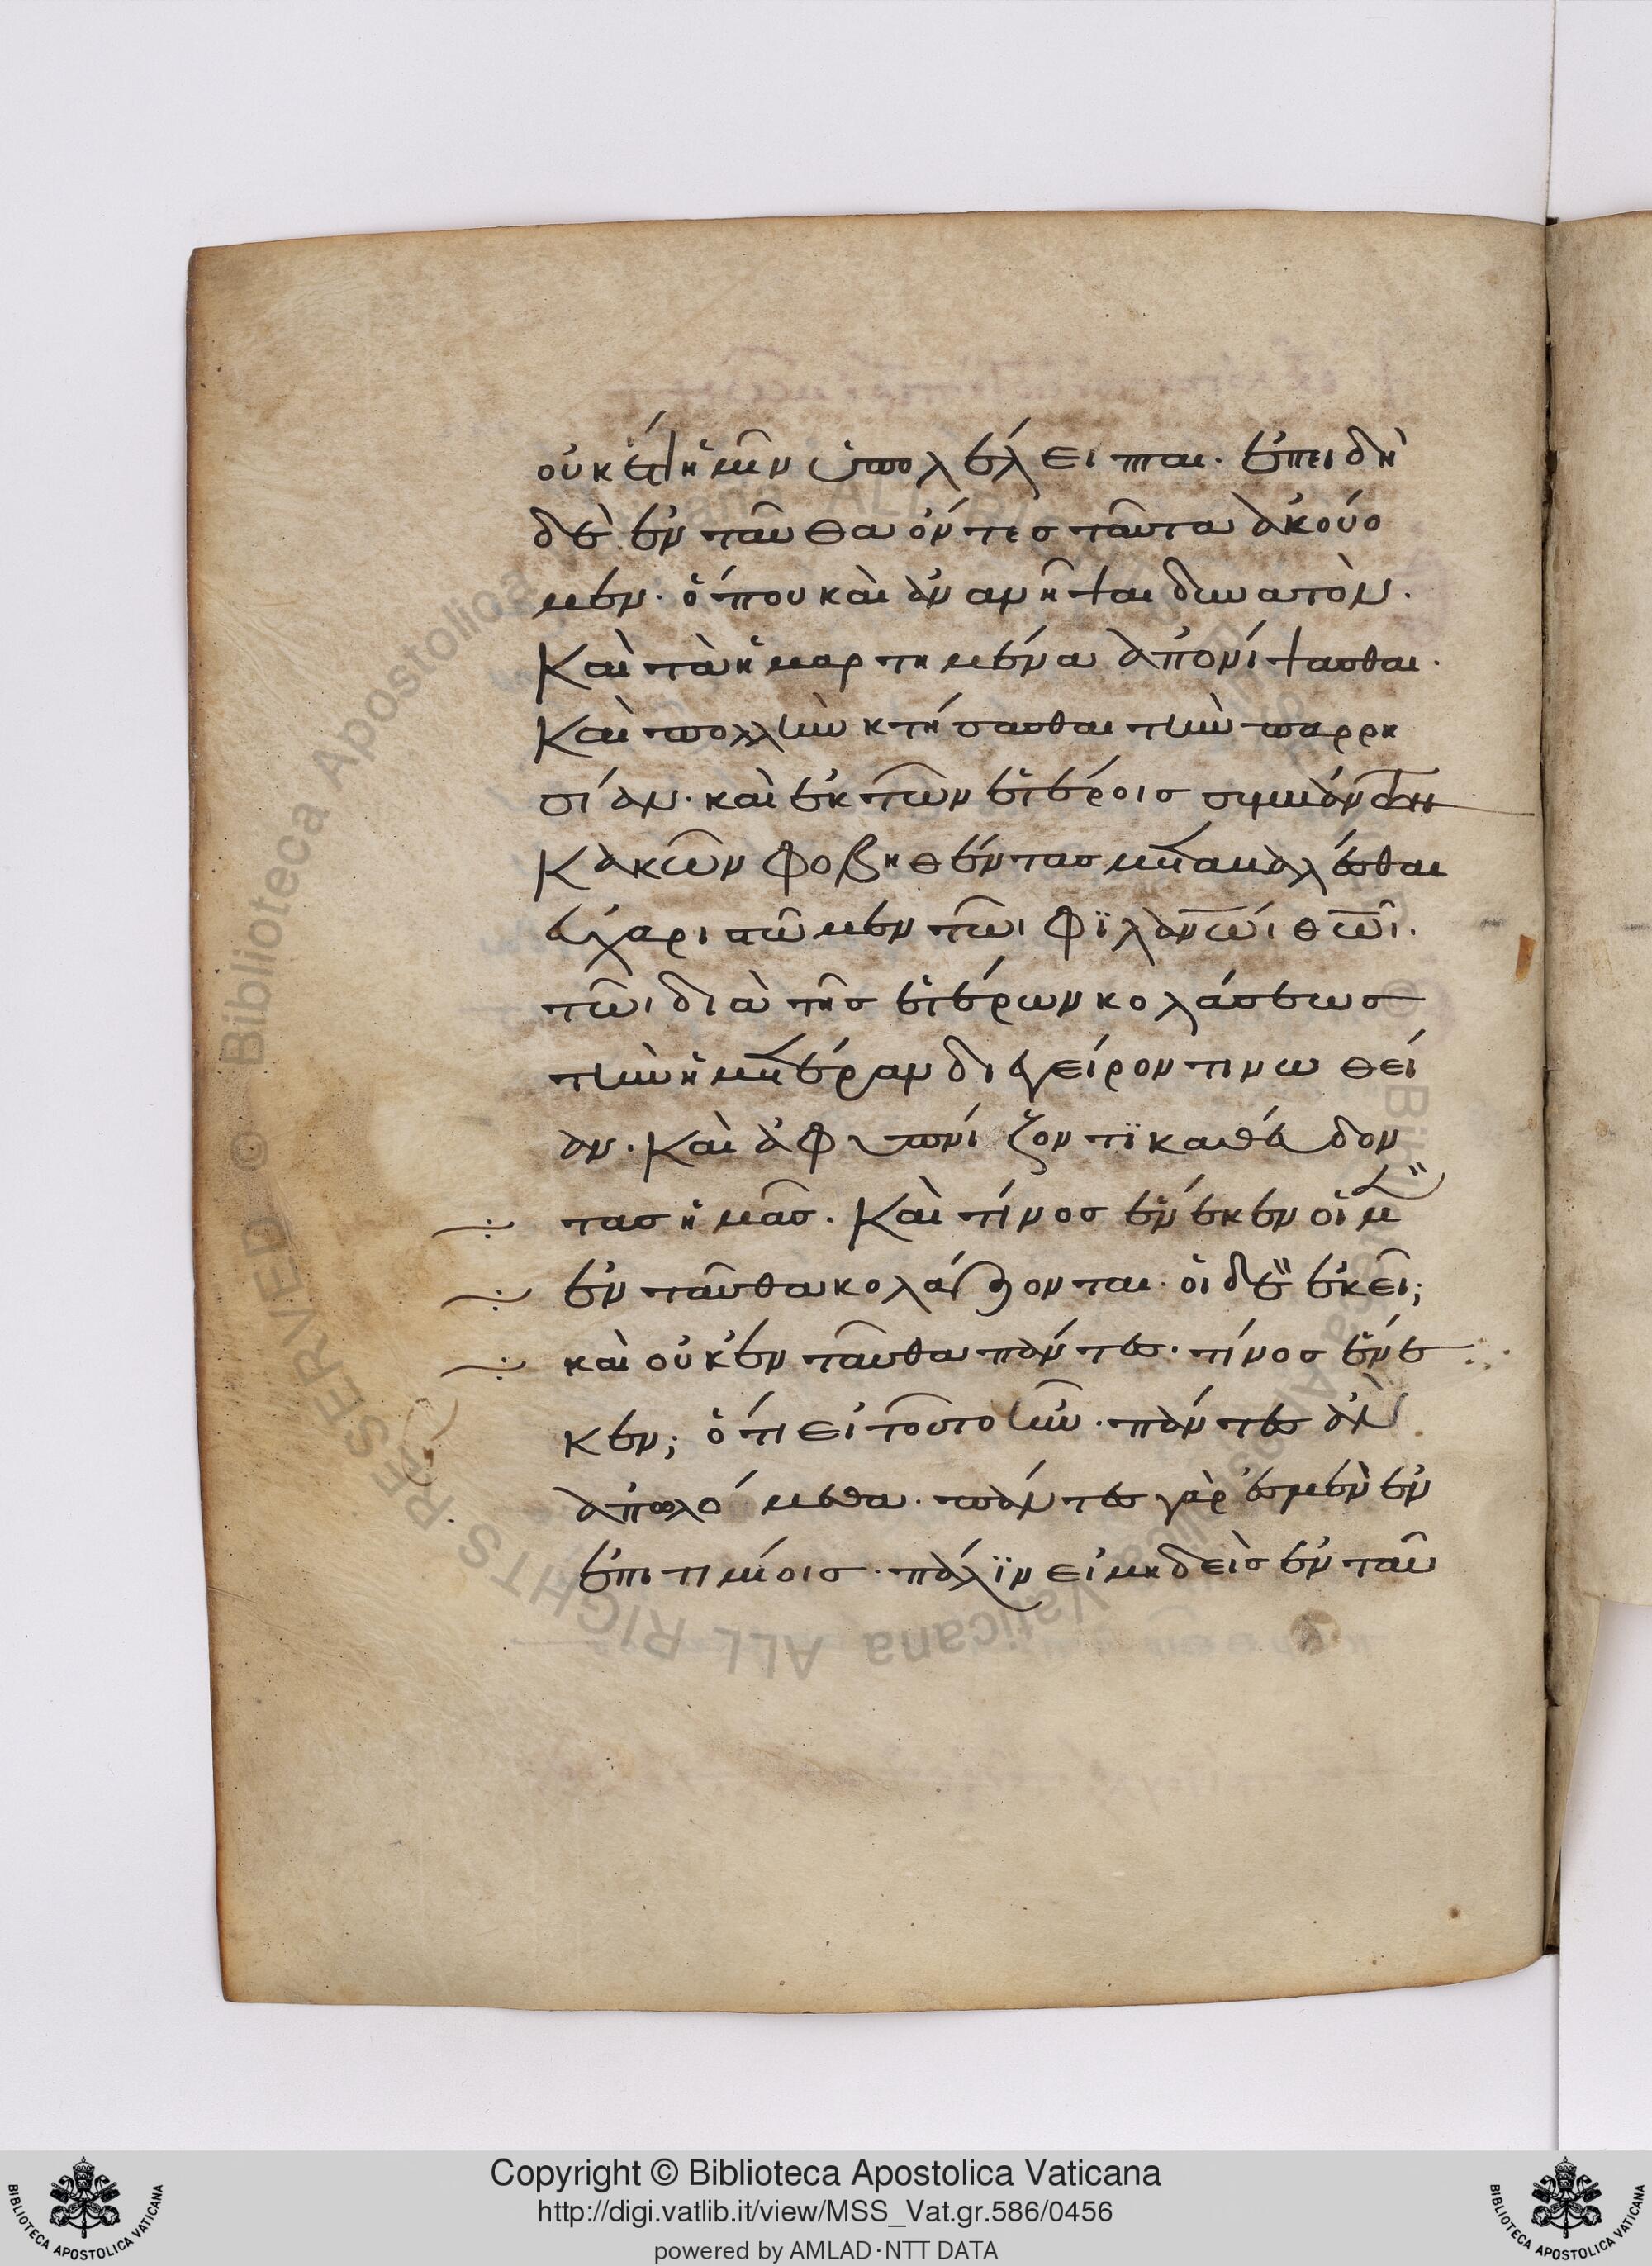 οὐκέτι ἡμῖν ὑπολέλειπται. ἐπειδὴ
δὲ ἐνταῦθα ὄντες ταῦτα ἀκούο
μεν. ὅπου καὶ ἀνανῆψαι δυνατόν.
Καὶ τὰ ἡμαρτημένα ἀπονίψασθαι.
Καὶ πολλὴν κτήσασθαι τὴν παρρη
σίαν. καὶ ἐκ τῶν ἑτέροις συμβάντων
Κακῶν φοβηθέντας μεταβαλέσθαι
εὐχαριστῶμεν τῶι φϊλανω̅ι θω̅ι.
τῶι διὰ τῆς ἑτέρων κολάσεως
τὴν ἡμετέραν διεγείροντι νωθεί
αν. Καὶ ἀφυπνίζοντϊ καθεύδον
τας ἡμᾶς. Καὶ τίνος ἕνεκεν οἱ μὲν
ἐνταῦθα κολάζονται. οἱ δὲ ἐκεῖ;
καὶ οὐκ ἐνταῦθα πάντες. τίνος ἕνε
κεν; ὅτι εἰ τοῦτο ἦν. πάντες ἂν
ἀπολόμεθα. πάντες γάρ ἐσμεν ἐν
ἐπιτιμίοις. πάλϊν εἰ μηδεὶς ἐνταῦ
Copyright © Biblioteca Apostolica Vaticana
http://digi.vatlib.it/view/MSS_Vat.gr.586/0456
powered by AMLAD·NTT DATA
BIBLIOTECA APOSTOLICA VATICANA
BIBLIOTECA APOSTOLICA VATICANA
© Biblioteca Apostolica Vaticana ALL RIGHTS RESERVED